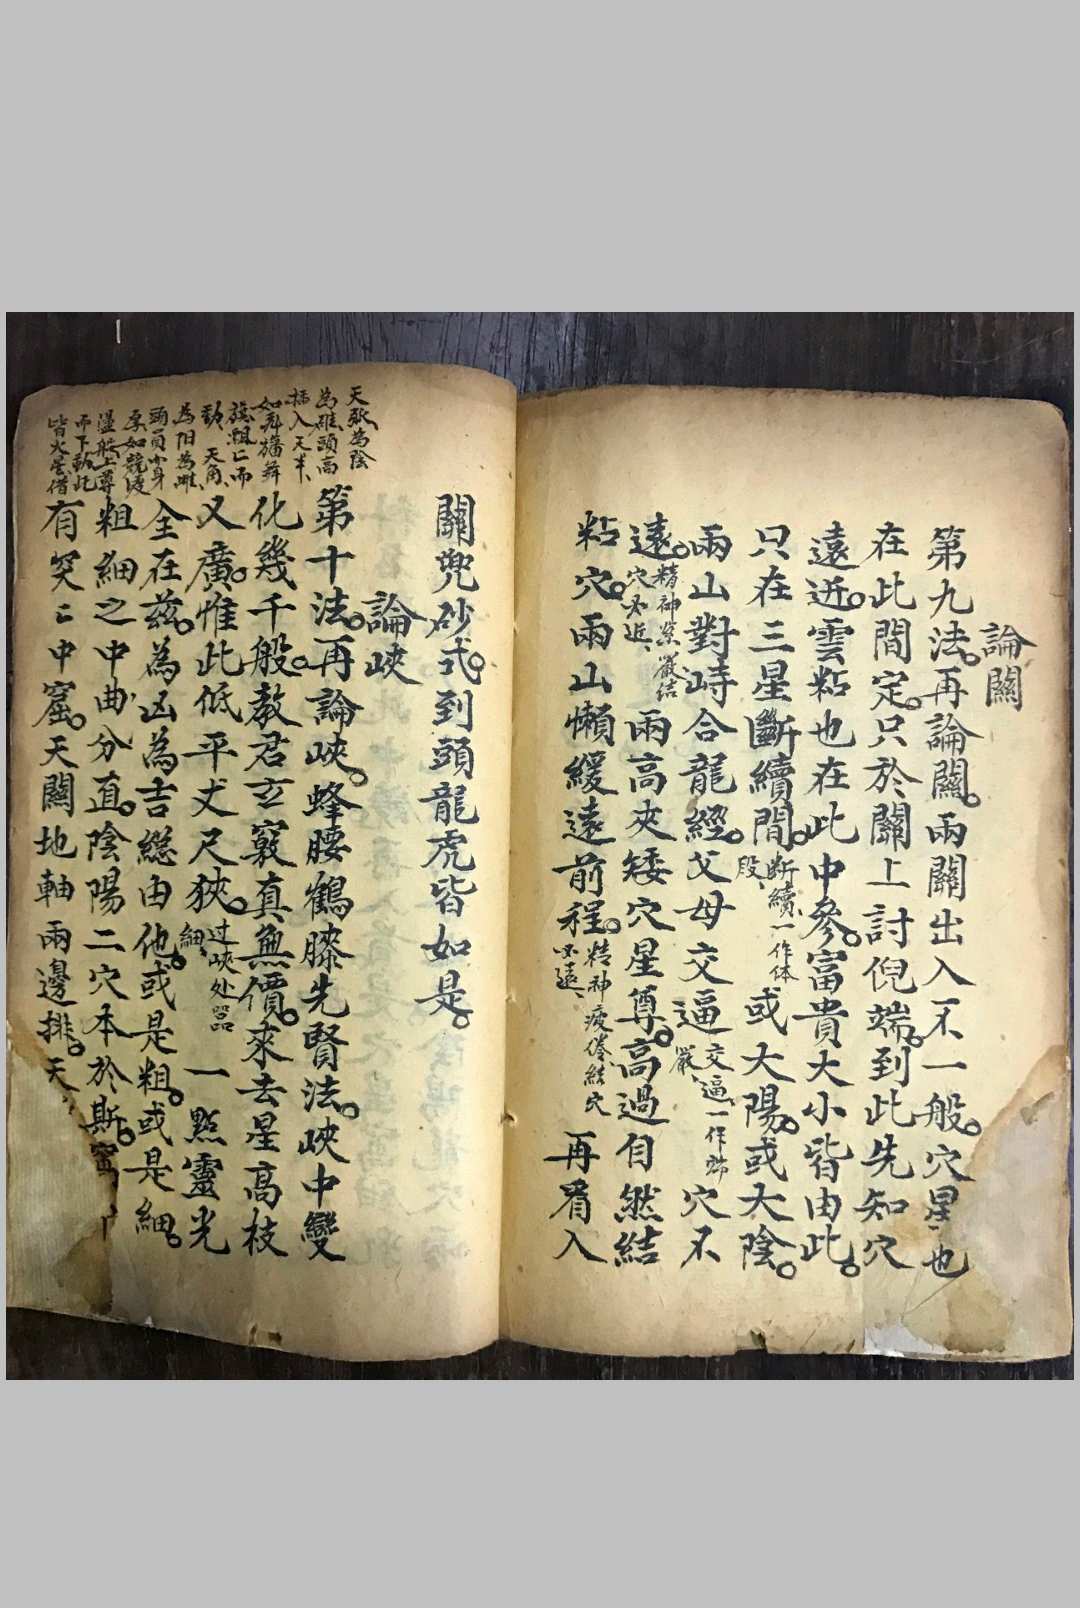 論關
第九法。再論關。兩關出入不一般。穴星也
在此間定。只於關上討倪端。到此先知穴
遠迯。雲粘也在此中參。富貴大小皆由此。
只在三星斷續間。断續一作体段、或大陽。或大陰。
兩山對峙合龍經。父母交逼交逼一作嚴、穴不
遠。精神緊嚴結穴必近、兩高夾矮穴星尊。高過自然結
粘穴。兩山懶緩遠前程。精神疲倦結穴必遠、再看入
關兜砂式。到頭龍虎皆如是。
論峽
第十法。再論峽。蜂腰鶴膝先賢法。峽中變
化幾千般。教君玄竅真無價。來去星高枝
又廣。惟此低平丈尺狹。过峽处細、一點靈光
全在茲。為凶為吉總由他。或是粗。或是細。
粗細之中曲分直。陰陽二穴本於斯。窩
有突〻中窟。天關地軸兩邊排。天
天張為陰
為雄頭高
插入天半、
如舞旛舞
旗濶亡而
動、天角、
為阳為雌
頭員小身
厚如
盪般上尊
而下
皆火星借